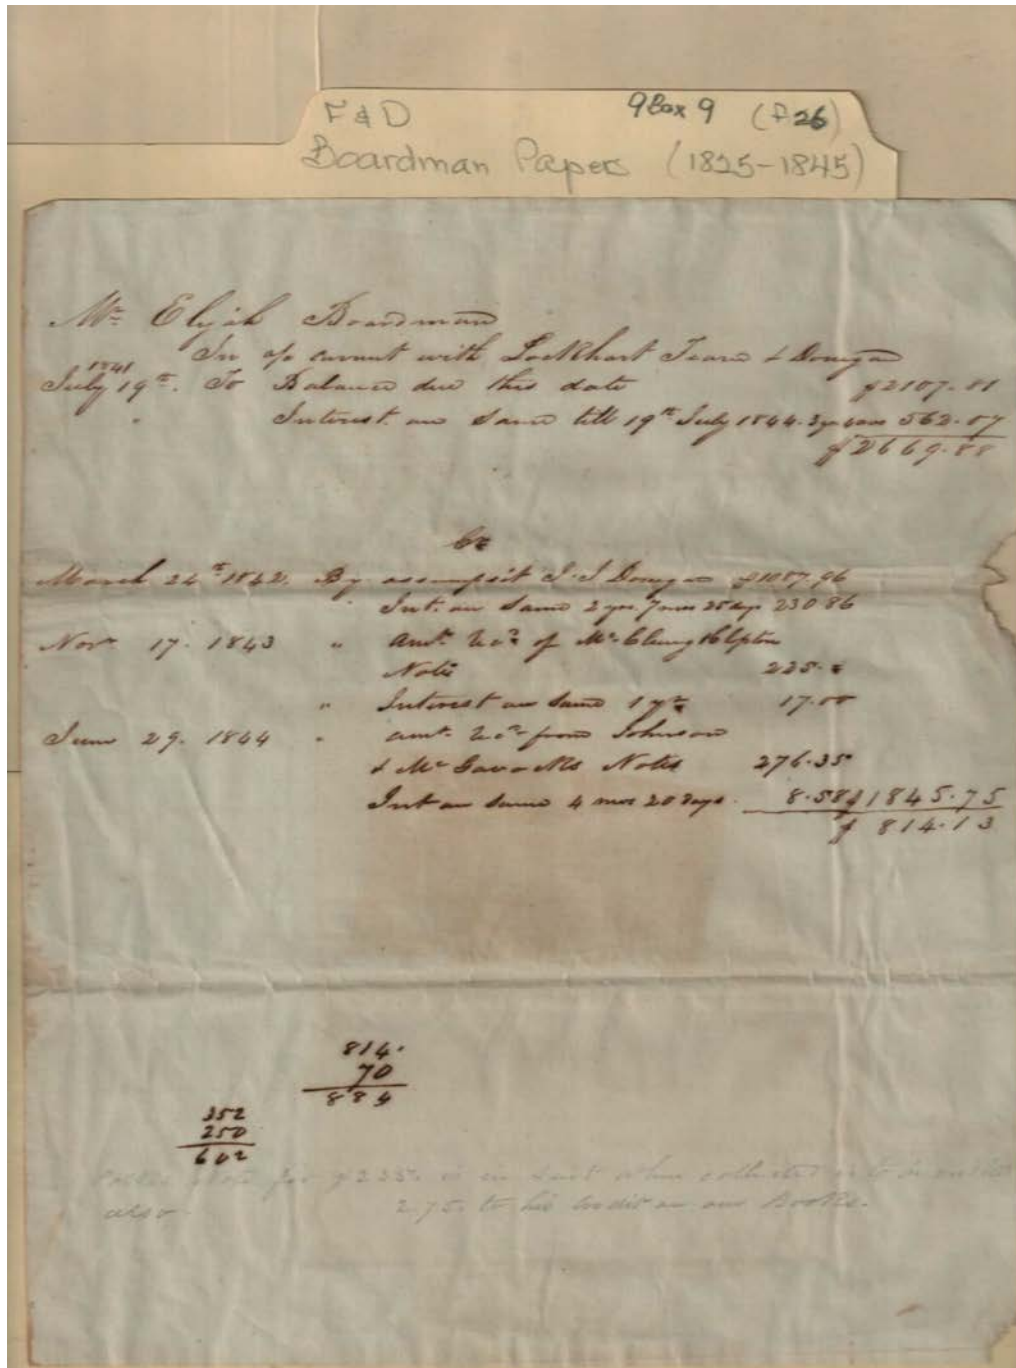 F & D 9 Box 9 (f 26)
Boardman Papers (1825-1845)
Mr Elijah Boardman
In a/c current with Lockhart & Donegan
1841
July 19th. To Balance due this date $2107.81
" Interest on Same till 19th July 1844. 562.07
$2669.88
Cr
March 24th 1842. By assumpsit J. J Donegan $1087.96
" Int. on Same 2 yrs. 7 mos 25 days 230 86
Novr 17. 1843 " Amt. of
Note 225.
" Interest on Same 1 yr 17.00
June 29. 1844 " amt. from Johnson
& McGavocks Notes 276.35
Int on Same 4 mos 20 days. 8.58 $1845.75
$ 814.13
814.
70
884
352
250
602
note for in Suit when collected is to be
also 2.75 to his credit on our Books.